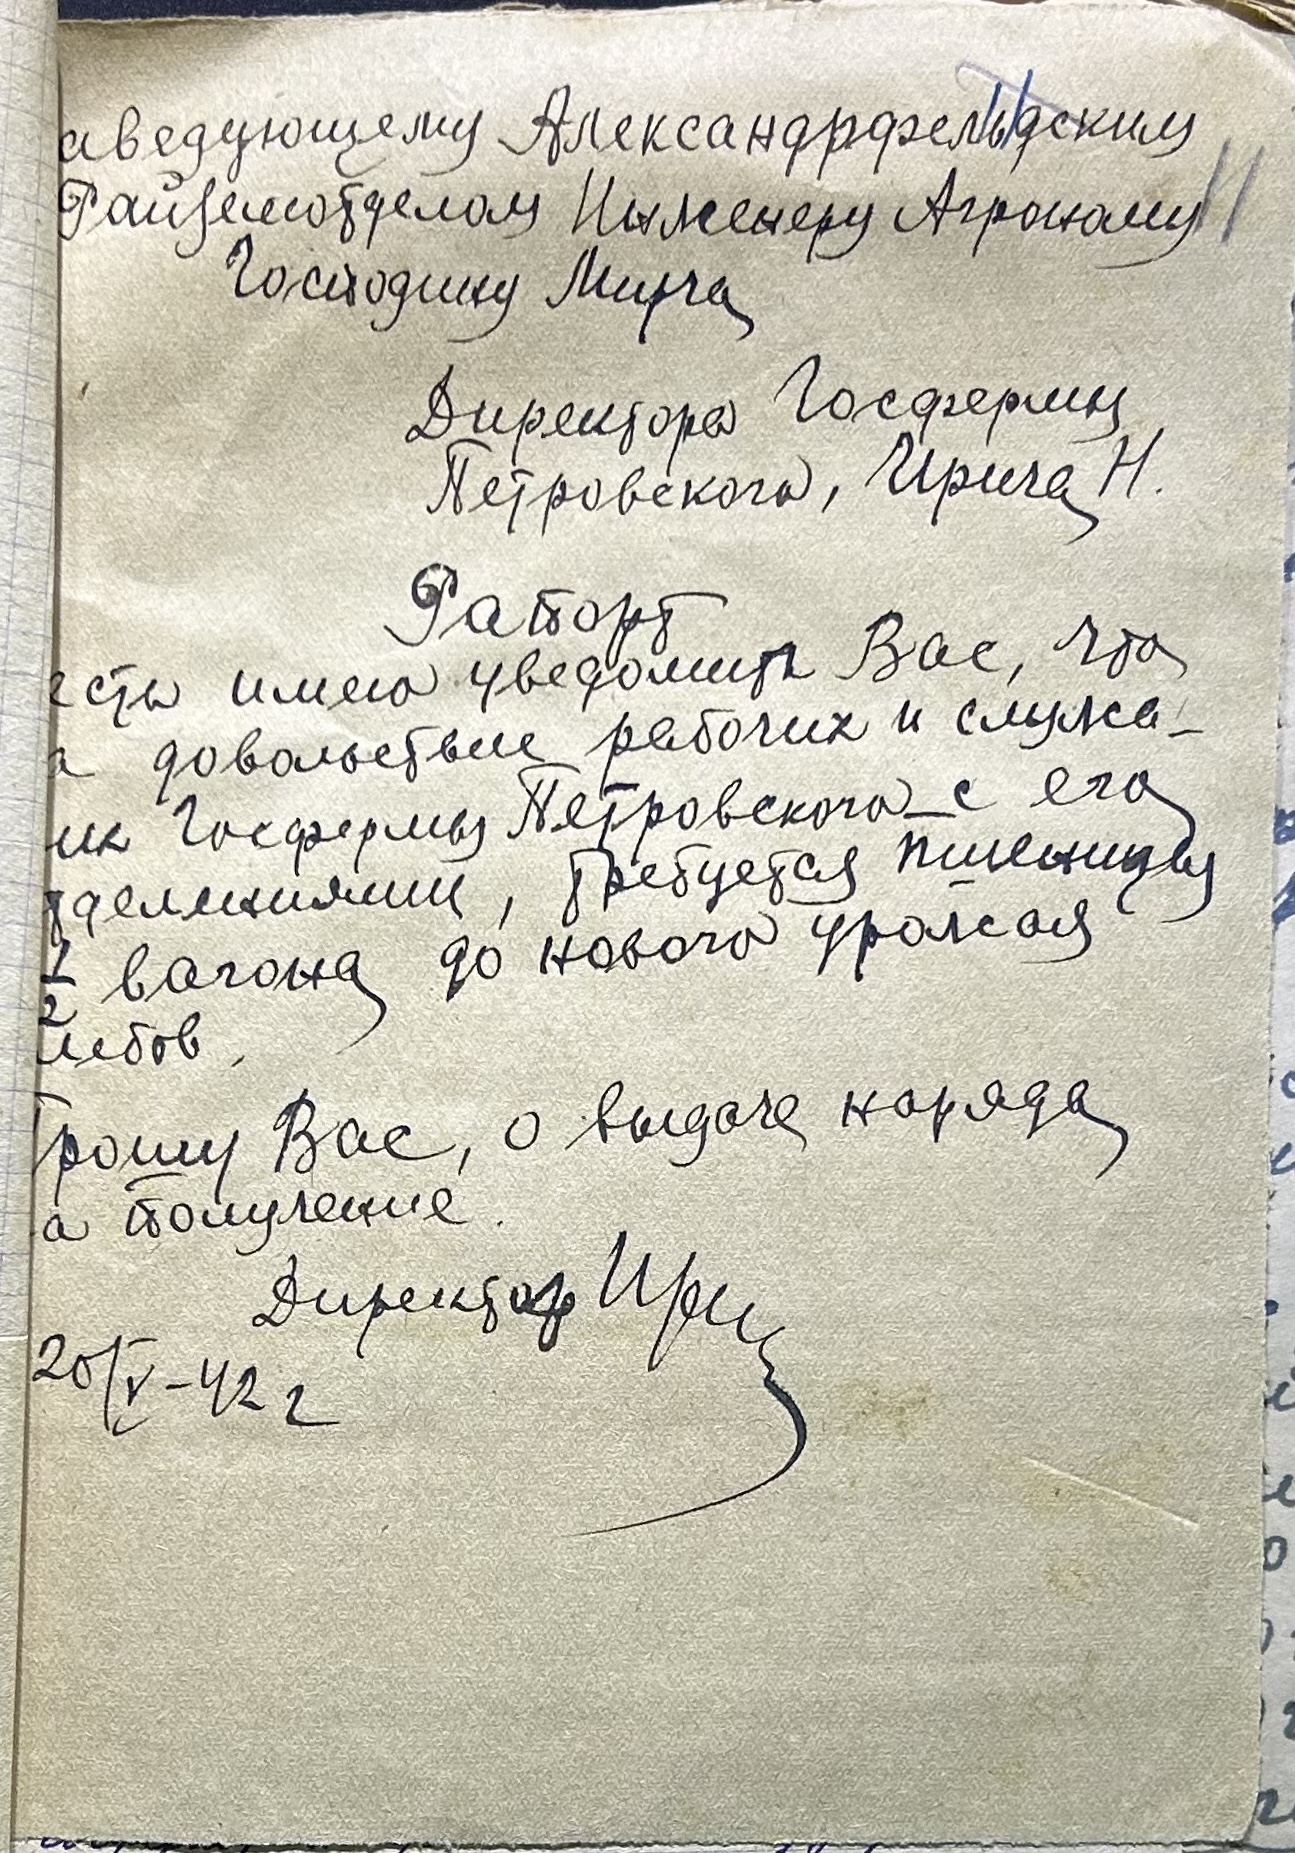 аведующему Александрфельдским
Райземотделом Инженеру Агроному
Господину Мирча
Директора Госфермы
Петровского, Ирича Н.
Рапорт
есть имею уведомить Вас, что
а довольствие рабочих и служа-
их Госфермы Петровского с его
тделениями, требуется пшеницы
1/2 вагона до нового урожая
лебов.
Прошу Вас, о выдаче наряда
а получение.
Директор Ирич
20/V-42 г